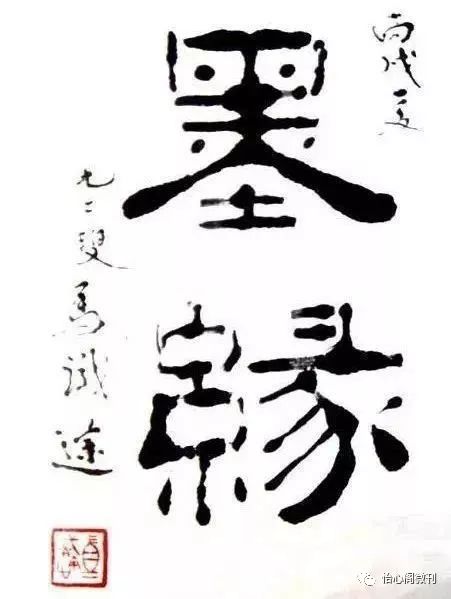 丙戌夏
墨緣
九二叟馬識途
怡心阁微刊